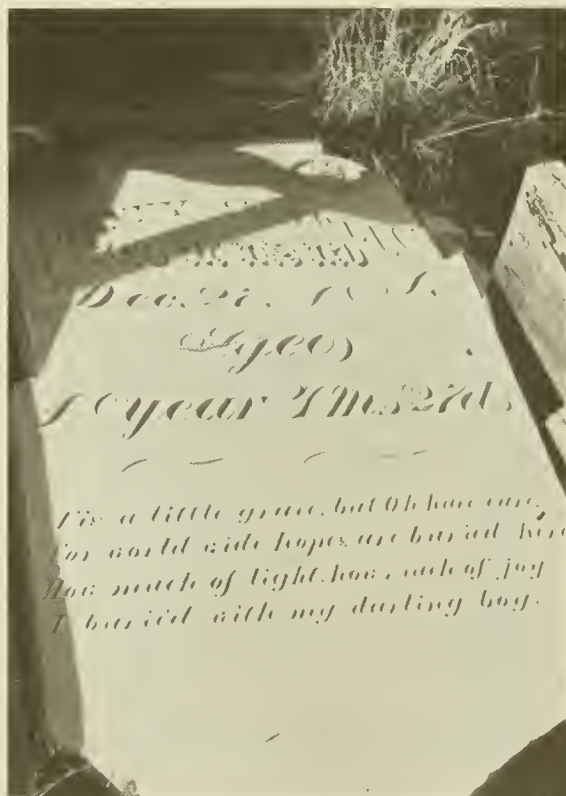 Dec. 27.
Aged
year 7Ms 27ds
'Tis a little grave, but Oh have care,
For world wide hopes are buried here
How much of light, how much of joy
Is buried with my darling boy.